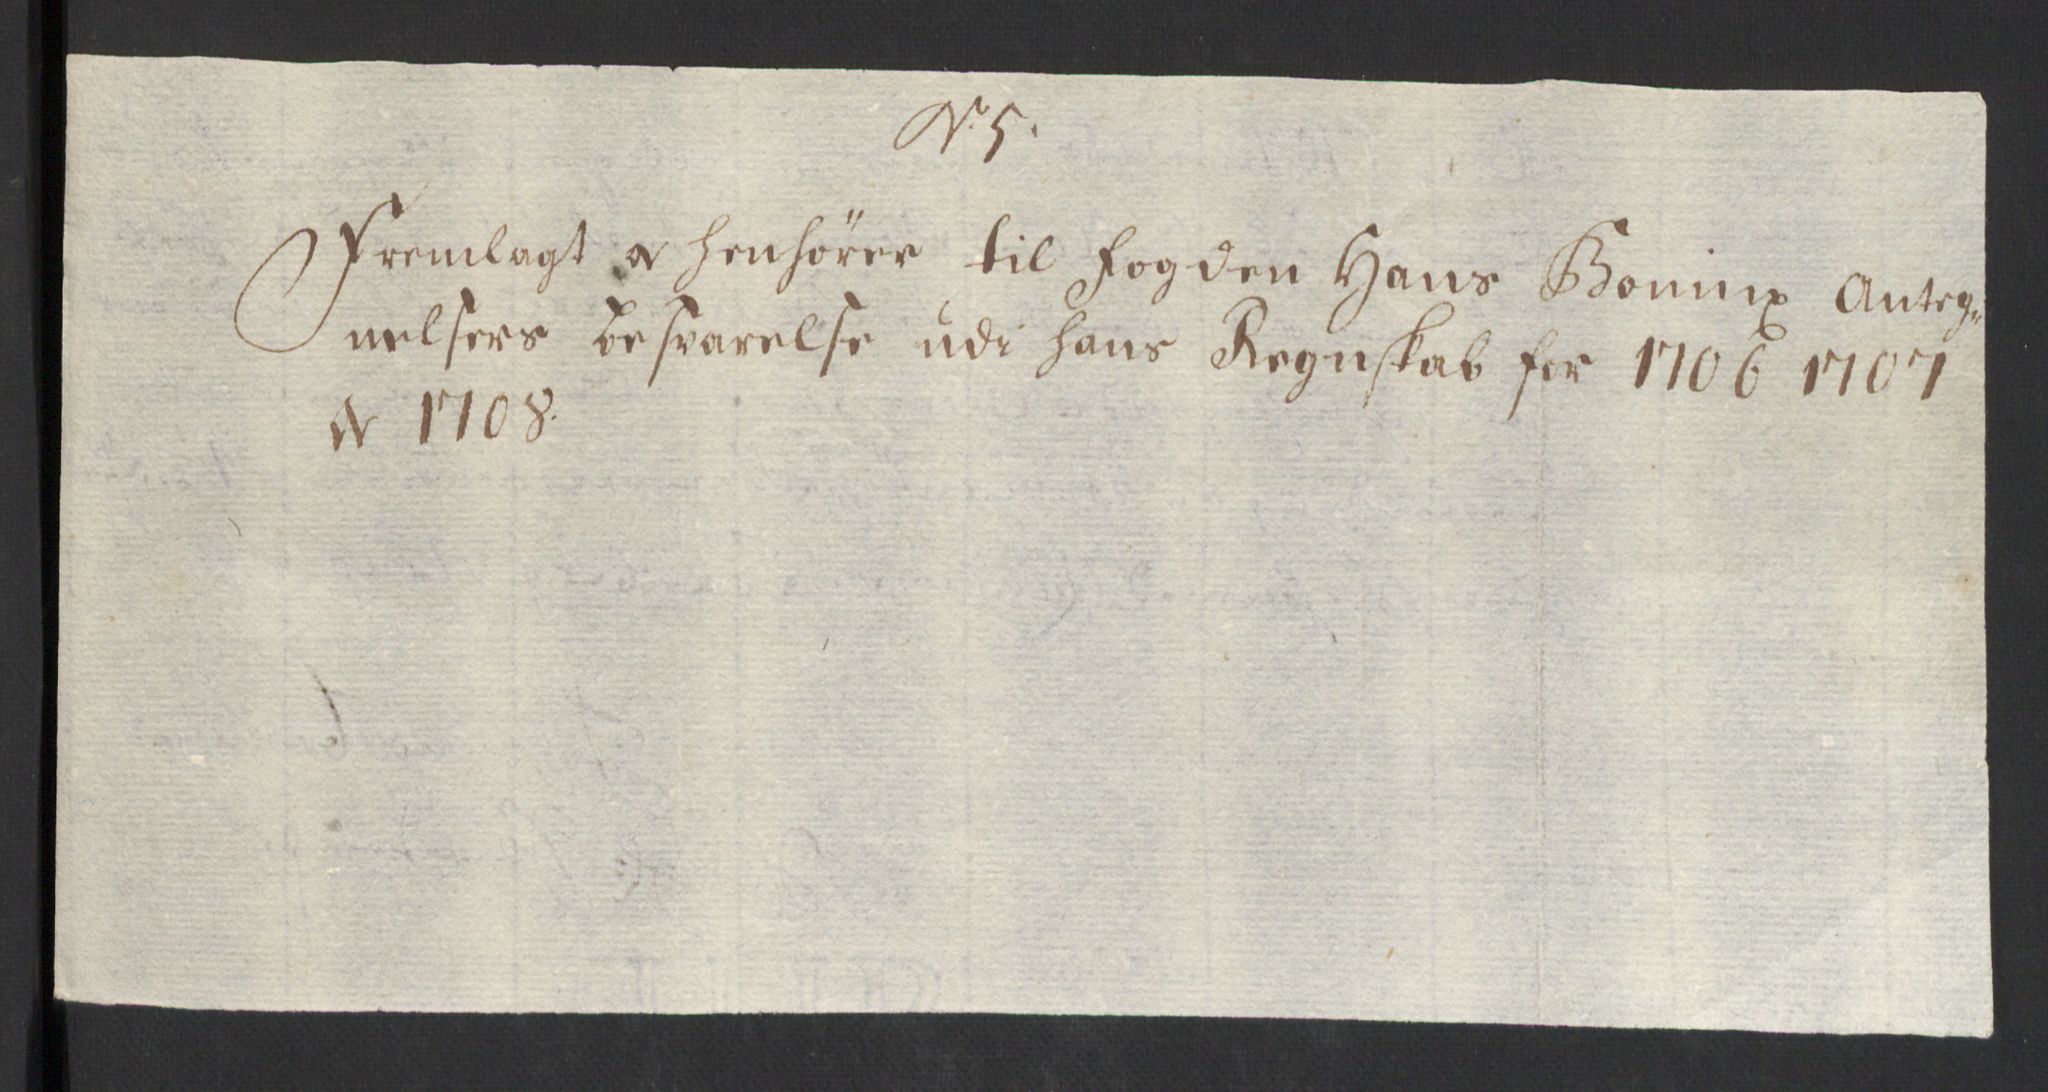 No 5.
Fremlagt og henhører til fogden Hans Boninx Anteg-
nelsers besvarelse udi hans Regnskab for 1706 1707
og 1708.